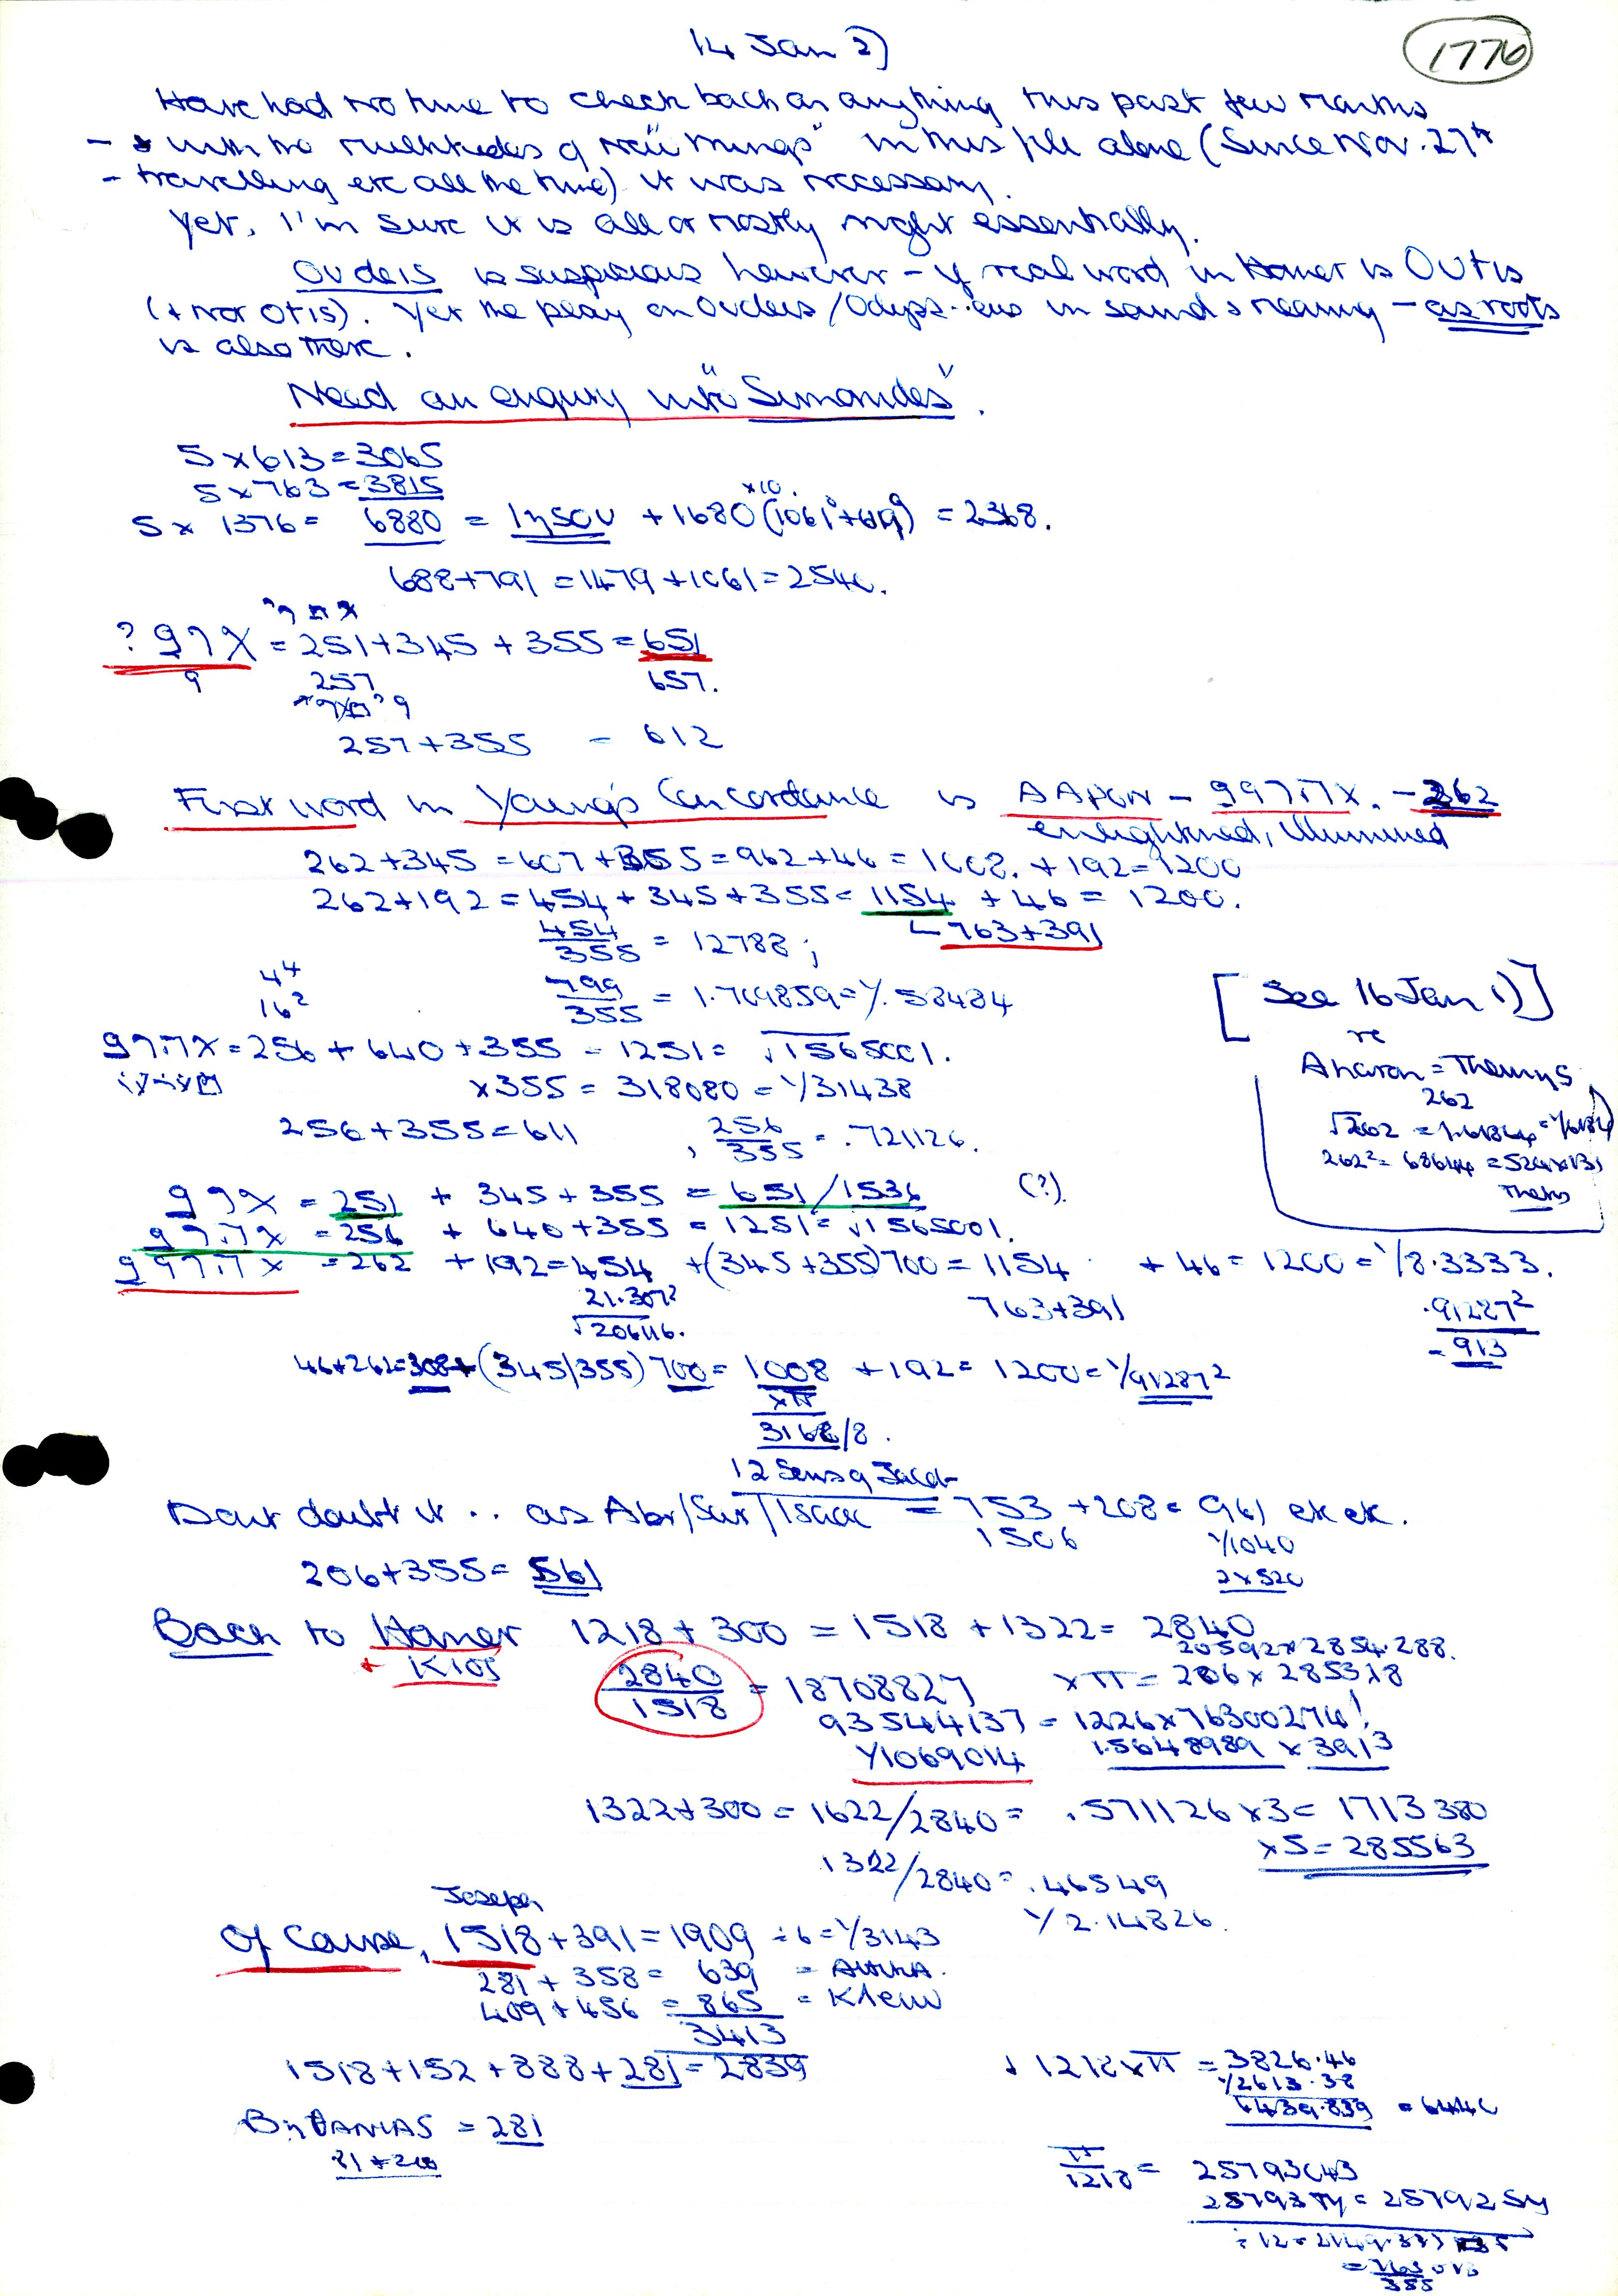 14 Jan 2)
1776
Have had no time to check back on anything this past few months
- with the multitudes of new "things" in this file alone (Since Nov. 27th
- travelling etc all the time) it was necessary.
Yet, I'm sure it is all or mostly right essentially.
Oudeis is suspicious however - if real word in Homer is OUtis
(+ not Otis). Yet the play on Oudeis / Odyss..eus in sound & meaning - as roots
is also there.
Need an enquiry into "Simonides".
5 x 613 = 3065
5 x 763 = 3815
x10.
5 x 1376 = 6880 = Iησου + 1680 (1061 + 619) = 2368.
688 + 791 = 1479 + 1061 = 2540.
= 251 + 345 + 355 = 651
9 257 657.
257 + 355 = 612
First word in Young's Concordance is - 262
enlightened, illumined
262 + 345 = 607 + 355 = 962 + 46 = 1008. + 192 = 1200
262 + 192 = 454 + 345 + 355 = 1154 + 46 = 1200.
763 + 391
454/355 = 12788;
4⁴
16²
799/355 = 1. = 1/.
[See 16 Jan 1)]
re
Aharon = Themys
262
= 256 + 640 + 355 = 1251 = √1565001.
x 355 = 318080 = 1/31438
256 + 355 = 611 , 256/355 = .721126.
= 251 + 345 + 355 = 651 / 1536 (?).
= 256 + 640 + 355 = 1251 = √1565001.
= 262 + 192 = 454 + (345 + 355) 700 = 1154 + 46 = 1200 = 1/8.3333.
21.307²
√206116.
763 + 391
.91287²
= 913
46 + 262 = 308 + (345/355) 700 = 1008 + 192 = 1200 = 1/91287²
xπ
3168/8.
12 Sons of Jacob
Dont doubt it .. as Abr/Sar/Isaac = 753 + 208 = 961 etc etc.
1506 1/1040
2 x 520
206 + 355 = 561
Back to Homer 1218 + 300 = 1518 + 1322 = 2840
+ Kιος
20592 x 2854.288.
2840/1518 = 18708827 xπ = 206 x 285318
93544137 = 1226 x 76300274!
1/1069014 1.5648989 x 3913
1322 + 300 = 1622/2840 = .571126 x 3 = 1713380
x 5 = 285563
1322/2840 = .46549
1/2.14826.
Joseph
Of Cause, 1518 + 391 = 1909 ÷ 6 = 1/3143
281 + 358 = 639
409 + 456 = 865 = Kλειω
3413
1518 + 152 + 888 + 281 = 2839
= 281
81 + 200
1218 x π = 3826.46
1/2613.38
6439.839 = 6440
π/1218 = 25793043
25793 Ty = 25792 Sy